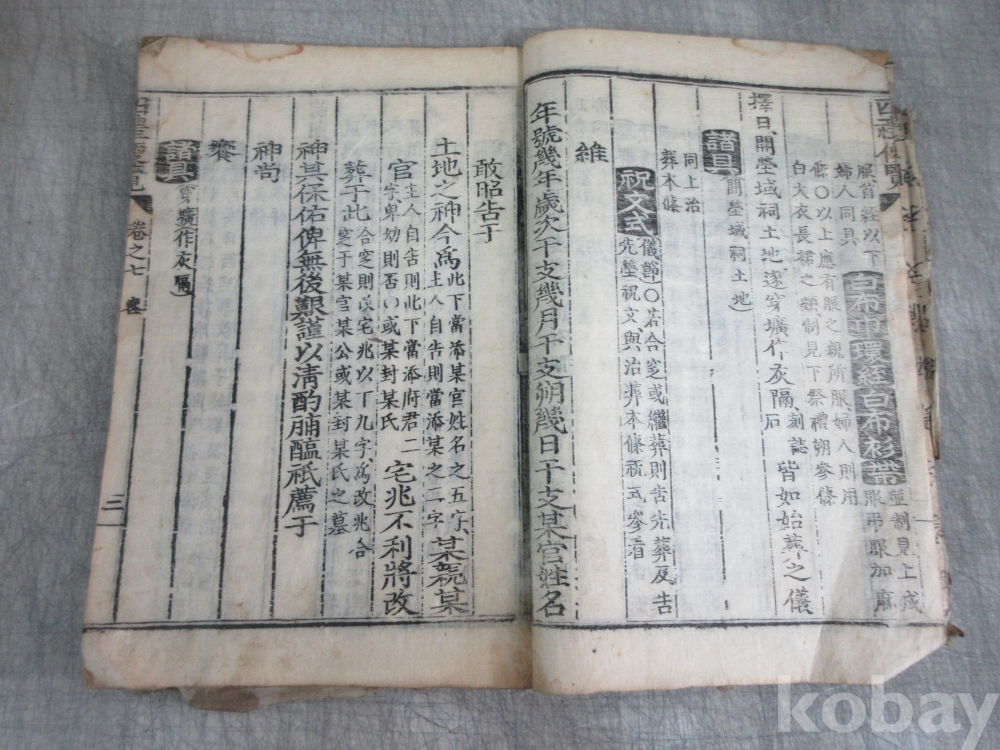 四禮便覽
服首絰以下
婦人同具
白布巾環絰白布衫帶
並制見上或
服弔服加麻
條〇以上應有服之親所服婦人則用
白大衣長裙之類制見下祭禮朔參條
擇日開塋域祠土地遂穿壙作灰隔刻誌石皆如始葬之儀
諸具開塋域祠土地
同上治
葬本條
祝文式
儀節〇若合窆或繼葬則告先葬及告
先塋祝文與治葬本條祝式參看
維
年號幾年歲次干支幾月干支朔幾日干支某官姓名
敢昭告于
土地之神今爲
此下當添某官姓名之五字
主人自告則當添某之二字
某親某
官
主人自告則此下當添府君二
字卑幼則否〇或某封某氏
宅兆不利將改
葬于此
合窆則改宅兆以下九字爲改兆合
窆于某官某公或某封某氏之墓
神其保佑俾無後艱謹以淸酌脯醢祗薦于
神尙
饗
諸具穿壙作灰隔
卷之七
三
kobay